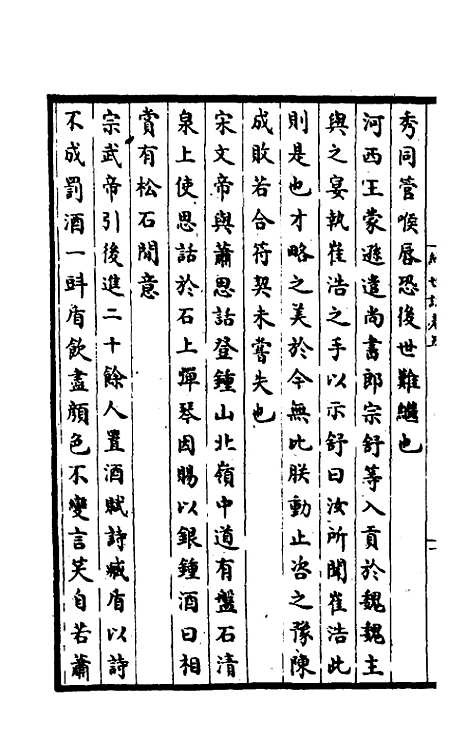 秀同管喉唇恐後世難繼也
河西王蒙遜遣尚書郎宗舒等入貢於魏魏主
與之宴執崔浩之手以示舒曰汝所聞崔浩此
則是也才略之美於今無比朕動止咨之豫陳
成敗若合符契未嘗失也
宋文帝與蕭思話登鍾山北嶺中道有盤石清
泉上使思話於石上彈琴因賜以銀鍾酒曰相
賞有松石間意
宗武帝引後進二十餘人置酒賦詩臧盾以詩
不成罰酒一斗盾飲盡顏色不變言笑自若蕭